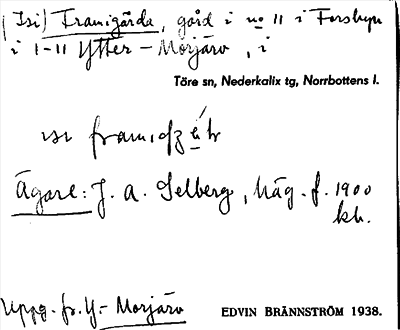 (Isi) Framigårda, gård i no 11 i Forsbyn
i 1-11 Ytter-Morjärv, i
Töre sn, Nederkalix tg, Norrbottens l.
Ägare: J. A. Selberg, häg. f. 1900
Uppg. fr. Y.- Morjärv
EDVIN BRÄNNSTRÖM 1938.